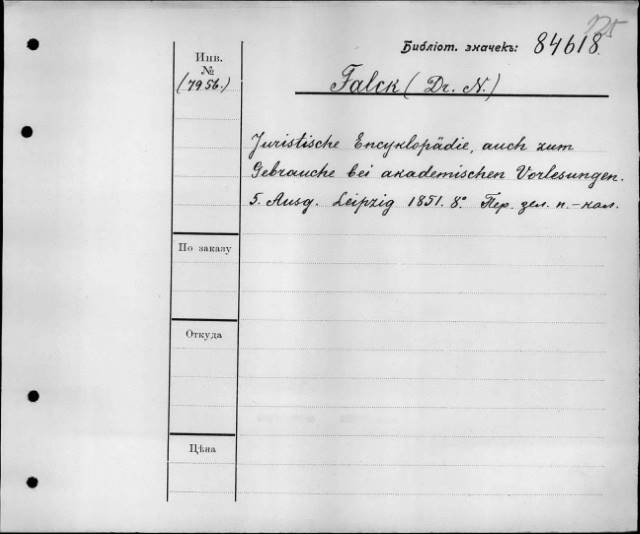 125
Библіот. значекъ: 84618.
Инв.
№
(7956.)
Falck (Dr. N.)
Juristische Encyklopädie, auch zum
Gebrauche bei akademischen Vorlesungen.
5. Ausg. Leipzig 1851. 8°. Пер. зел. п.-кал.
По заказу
Откуда
Цѣна